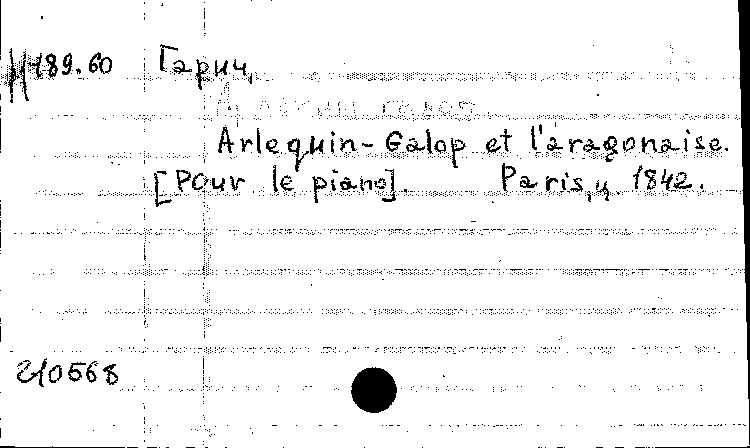 189.60 Гарич,
Arlequin-Galop et l'aragonaise.
[Pour le piano]. Paris, ц. 1842.
210568